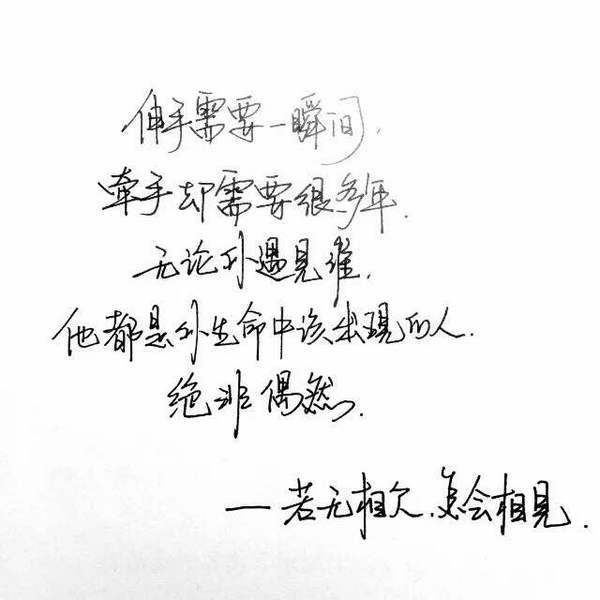 伸手需要一瞬间,
牵手却需要很多年.
无论你遇见谁,
他都是你生命中该出现的人.
绝非偶然.
—若无相欠、怎会相见.